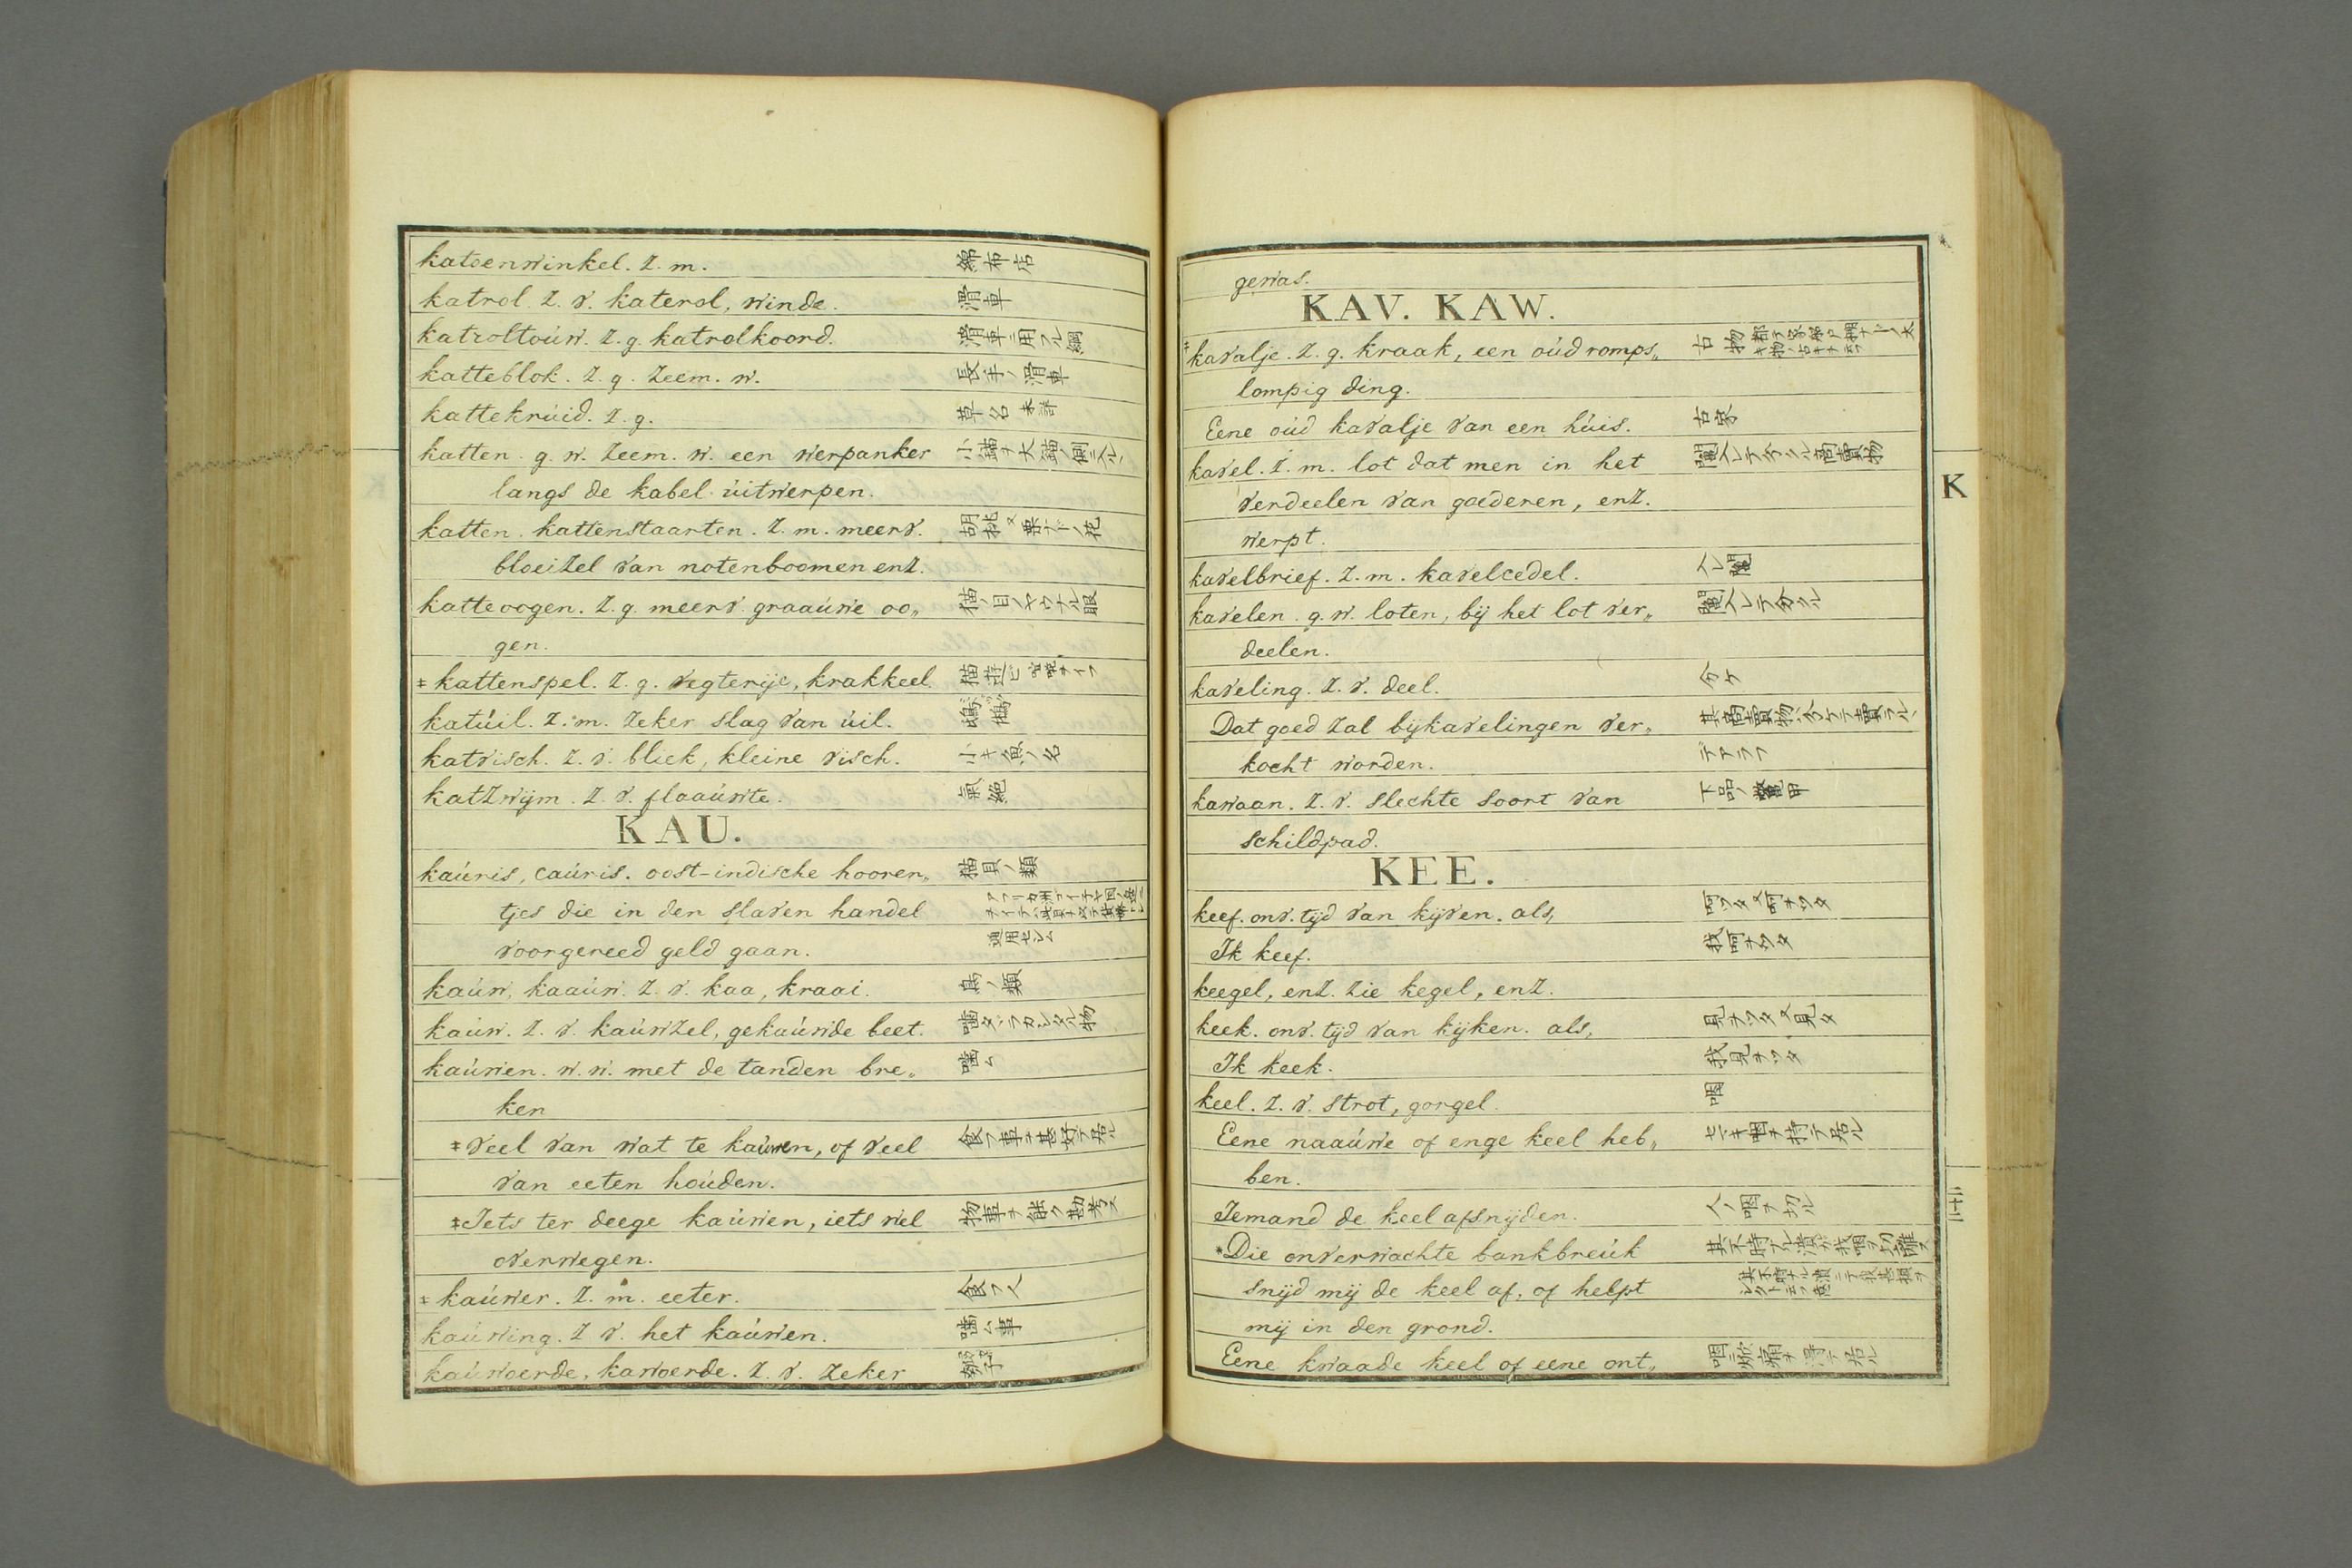 katoenwinkel. z. m. 綿布店
katrol. z. v. katerol, winde. 滑車
katroltoúw. z. g. katrolkoord. 滑車ニ用フル綱
katteblok. z. g. zeem. w. 長キ滑車
kattekrúid. z. g. 草名 未詳
katten. g. w. zeem. w. een werpanker 小錨ヲ大錨ノ側ニ入ル
langs de kabel úitwerpen.
katten. kattenstaarten. z. m. meerv. 胡桃又栗ナドノ花
bloeizel van notenboomen enz.
katteoogen. z. g. meerv. graaúwe oo„ 猫ノ目ノヤウナル眼
gen.
‡kattenspel. z. g. vegterije, krakkeel. 猫遊ビ
katúil. z. m. zeker slag van úil.
katvisch. z. v. bliek, kleine visch. 小キ魚ノ名
katzwijm. z. v. flaaúwte. 氣絶
KAU.
kaúris, caúris. oost-indische hooren„ 猫貝ノ類
tjes die in den slaven handel
voorgereed geld gaan. 通用セシム
kaúw, kaaúw. z. v. kaa, kraai. 鳥ノ類
kaúw. z. v. kaúwzel, gekaúwde beet. 噛ダラカシタル物
kaúwen. w. w. met de tanden bre„ 噛ム
ken
‡Veel van wat te kaúwen, of veel 食フ事ヲ甚好テ居ル
van eeten hoúden.
‡Iets ter deege kaúwen, iets wel 物事ヲ能ク勘考ス
overwegen.
‡kaúwer. z. m. eeter. 食フ人
kaúwing. z v. het kaúwen. 噛ム事
kaúwoerde, kawoerde. z. v. zeker
gewas.
KAV. KAW.
‡kavalje. z. g. kraak, een oúd romps„ 古物
lompig ding.
Eene oúd kavalje van een húis. 古家
kavel. z. m. lot dat men in het 鬮入レテ分クル商賣物
verdeelen van goederen, enz.
werpt.
kavelbrief. z. m. kavelcedel. 入レ鬮
kavelen. g. w. loten, bij het lot ver„ 鬮入レテ分クル
deelen.
kaveling. z. v. deel. 分ケ
Dat goed zal bijkavelingen ver„ 其商賣物ハ分ケテ賣ラル、
kocht worden. デアラフ
kawaan. z. v. slechte soort van 下品ノ鼈甲
schildpad.
KEE.
keef. onv. tijd van kijven. als, 呵ツタ 又 呵ヲツタ
Ik keef. 我呵ヲツタ
keegel, enz. zie kegel, enz.
keek. onv. tijd van kijken. als, 見ヲツタ 又 見タ
Ik keek. 我見ヲツタ
keel. z. v. strot, gorgel. 咽
Eene naaúwe of enge keel heb„ セマキ咽ヲ持テ居ル
ben.
Iemand de keel afsnijden. 人ノ咽ヲ切ル
*Die onverwachte bankbreúk 其不時ナル潰ガ我咽ヲ切離ス
snijd mij de keel af, of helpt
mij in den grond.
Eene kwaade keel of eene ont„ 咽ニ焮痛ヲ得テ居ル
K